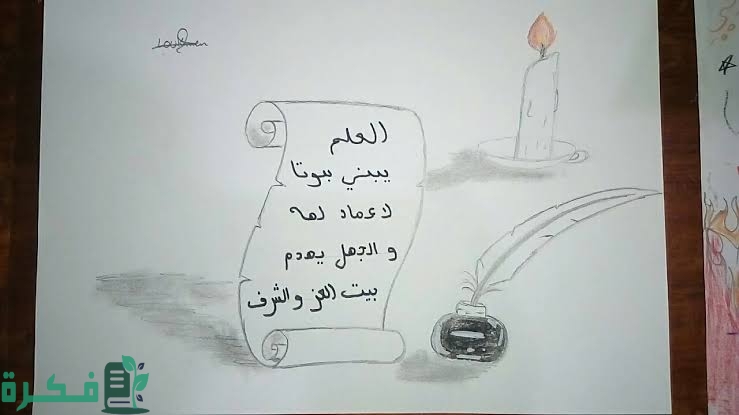 العلم
يبني بيوتا
لا عماد لهه
و الجهل يهدم
بيت العز والشرف
فكرة